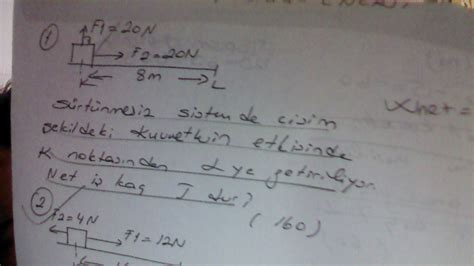 1 F1=20N
F2=20N
8m L
Sürtünmesiz sistemde cisim
şekildeki kuvvetlerin etkisinde
K noktasından L ye getiriliyor.
Net iş kaç J dur?
(160)
2 F2=4N
F1=12N